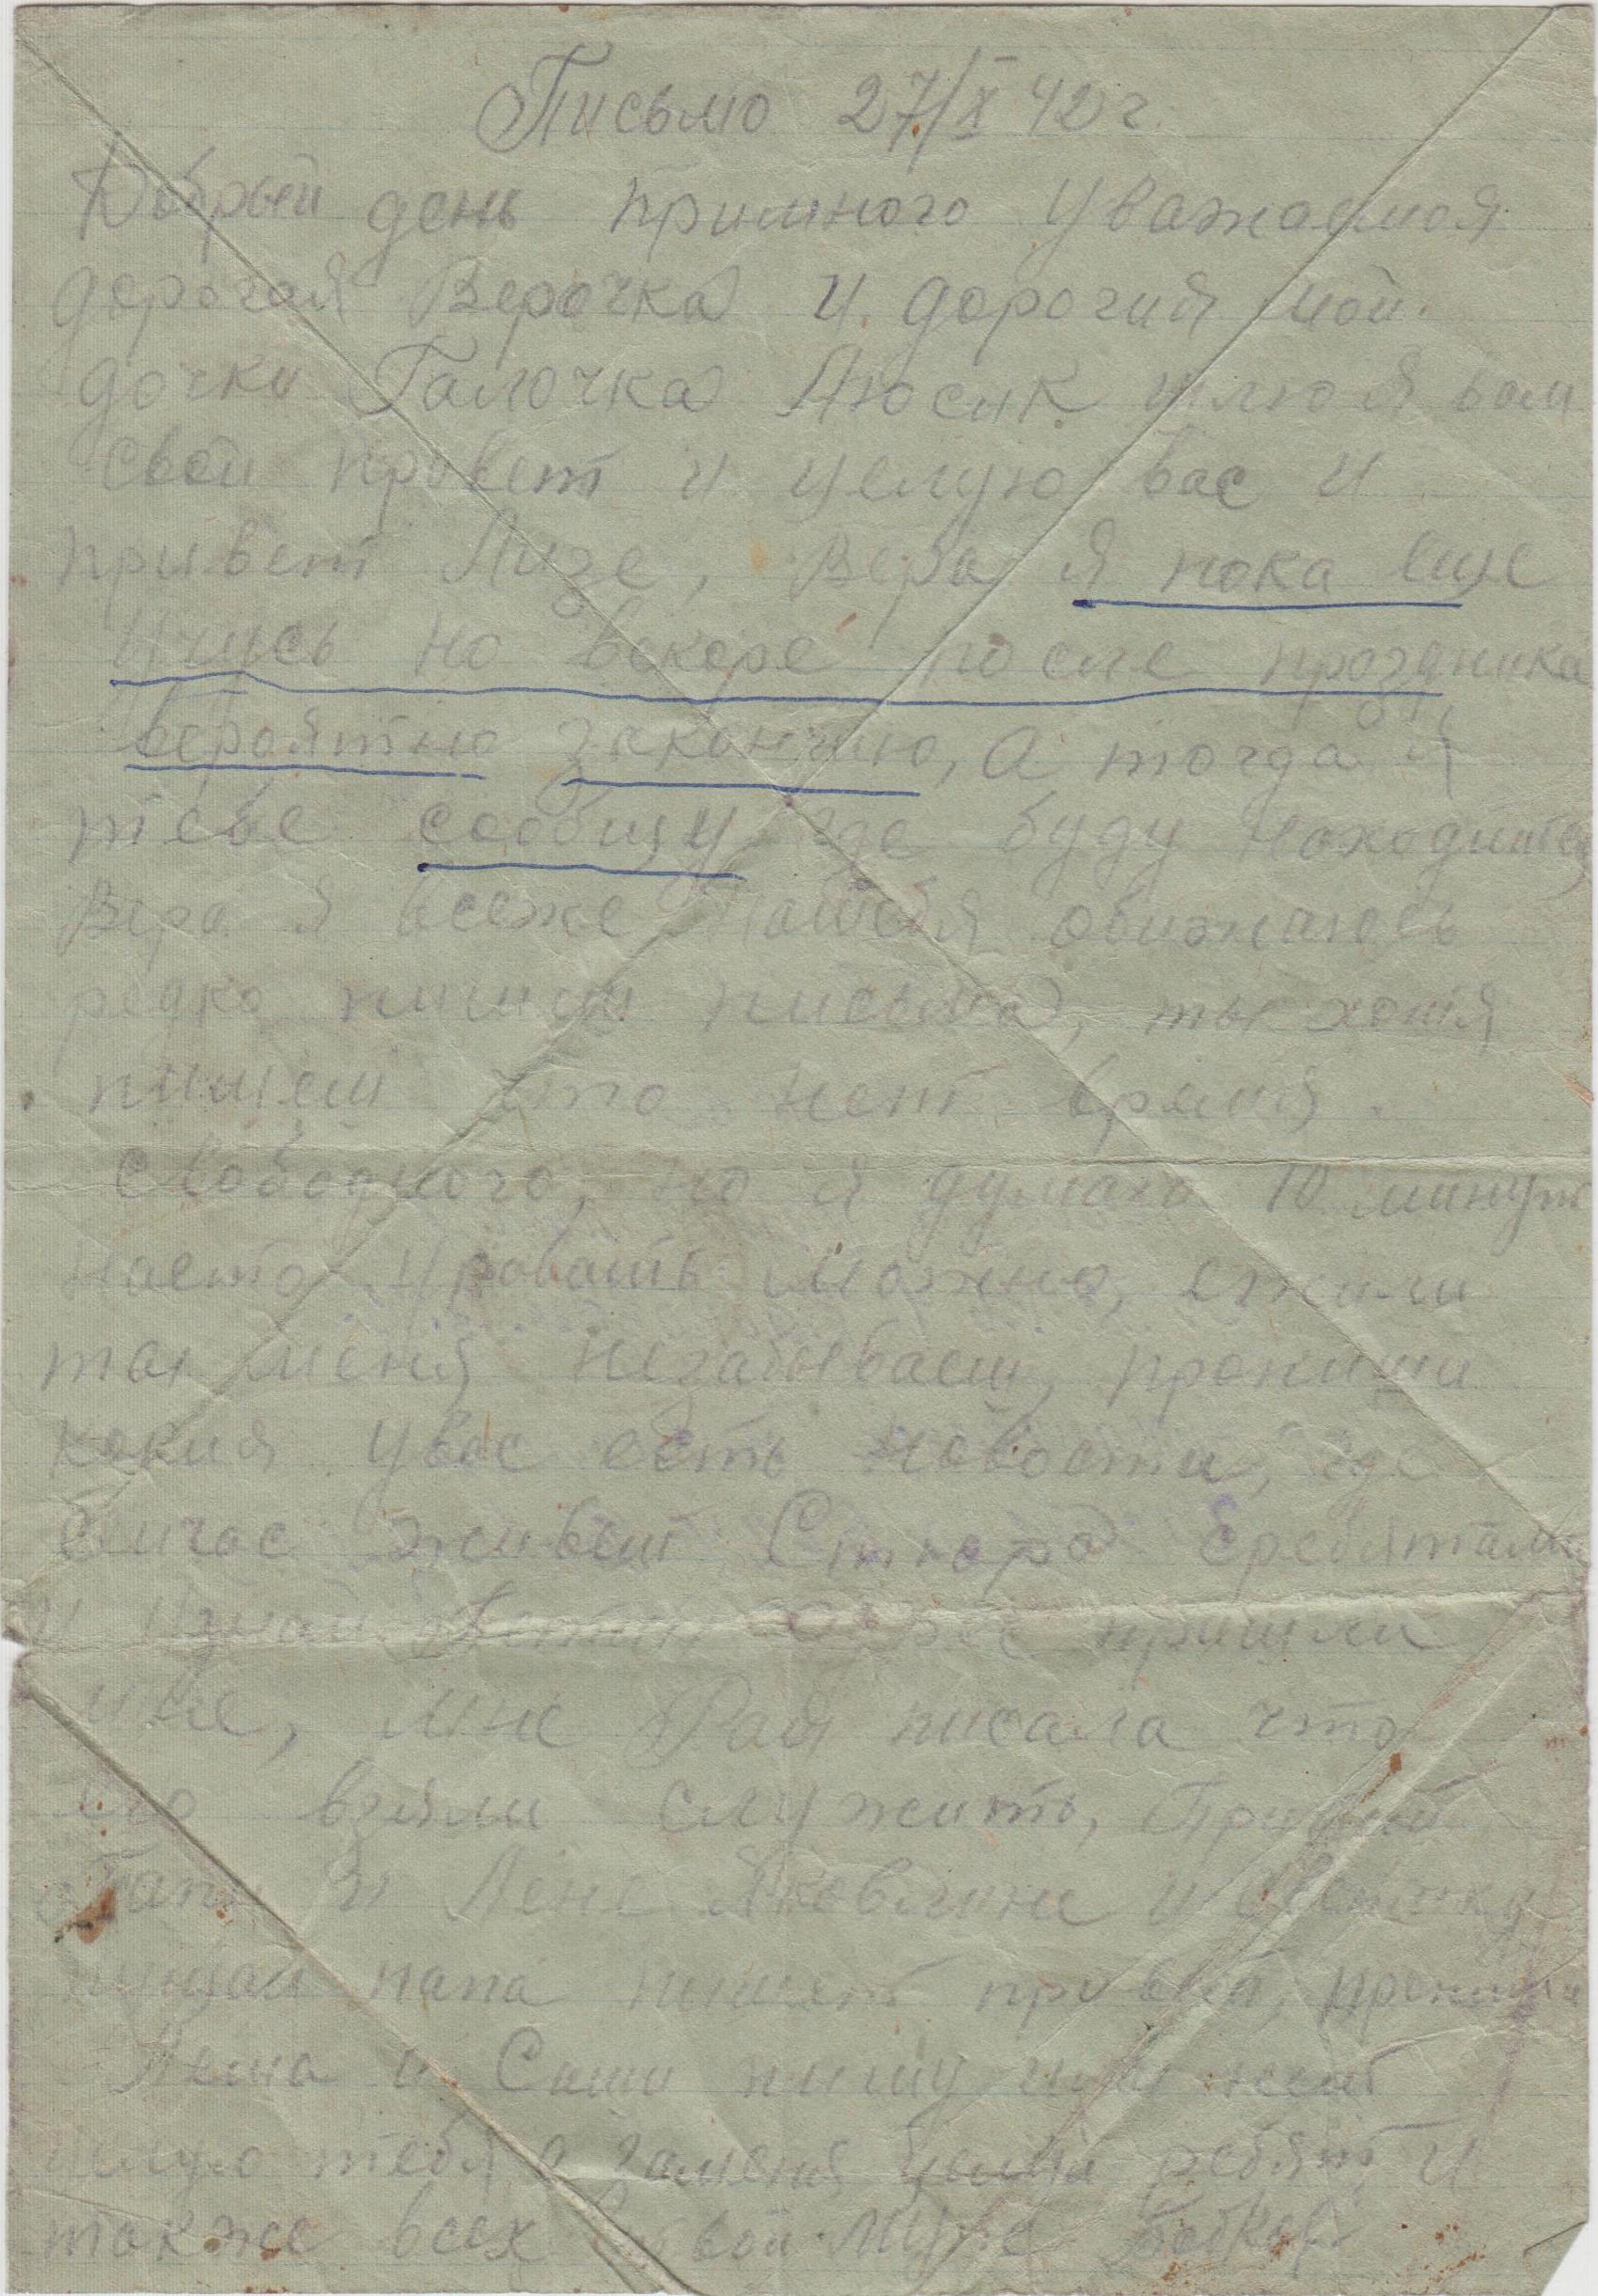 Письмо 27/X 42 г.
Добрый день примного уважаемая
дорогая Верочка и дорогия мои
дочки Галочка Люсик шлю я вам
свой привет и целую вас и
привет Лизе, Вера я пока еще
учусь но вскоре после праздника
вероятно закончию, а тогда я
тебе сообщу где буду находится
Вера я всеже натебя обижаюсь
редко пишеш письма, ты хотя
пишеш что нет время
свободного, но я думаю 10 минут
часто уровать можно, ежили
ты меня незабываеш, пропиши
какия увас есть новости, где
сейчас живет Стюра сребятами
и узнай пришли
мне, мне Рая писала что
его взяли служить, Привет
Папи и Лене Яковлине и
пущай папа пишет привет, пропиши
Леша и Саши пишу или нет
целую тебя а заменя целуй ребят и
также всех твой муж